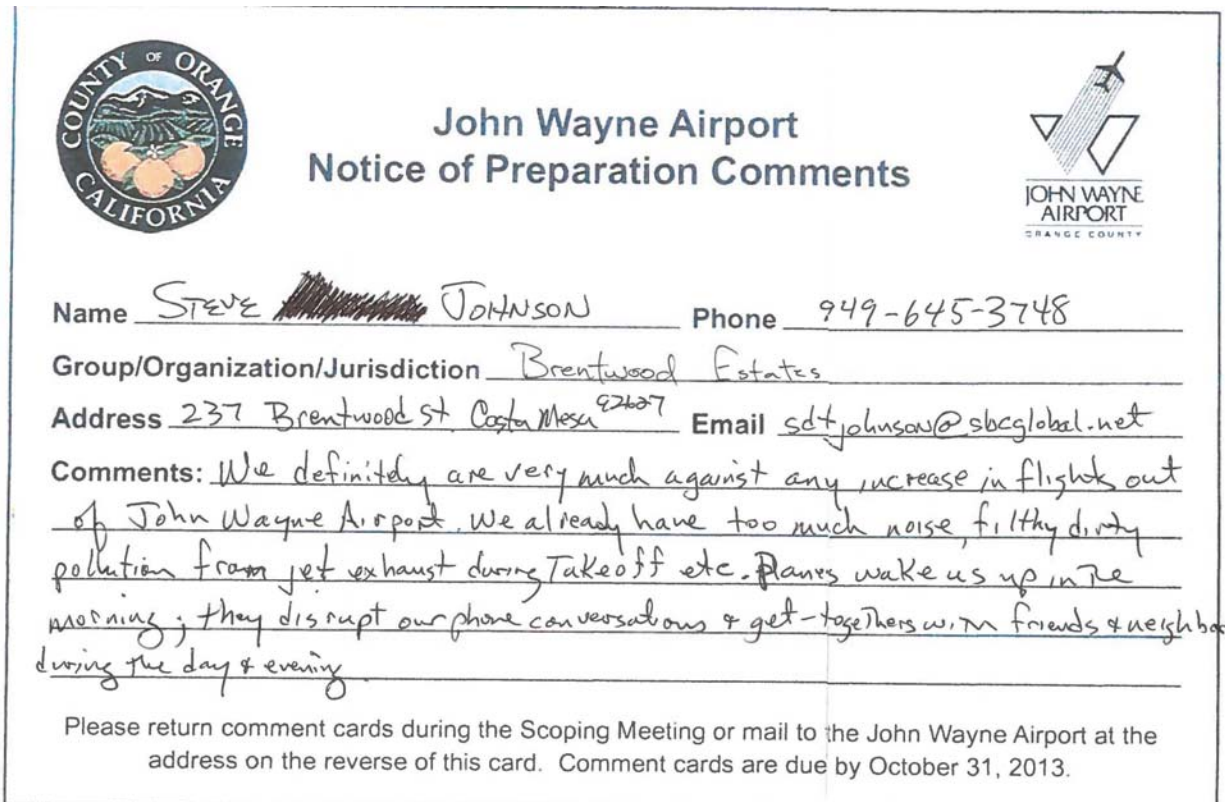 COUNTY OF ORANGE
CALIFORNIA
John Wayne Airport
Notice of Preparation Comments
JOHN WAYNE
AIRPORT
ORANGE COUNTY
Name STEVE JOHNSON Phone 949-645-3748
Group/Organization/Jurisdiction Brentwood Estates
Address 237 Brentwood St Costa Mesa 92627 Email sdtjohnson@sbcglobal.net
Comments: We definitely are very much against any increase in flights out
of John Wayne Airport. We already have too much noise, filthy dirty
pollution from jet exhaust during Takeoff etc. Planes wake us up in The
morning; they disrupt our phone conversations & get-togethers with friends & neighbo
during the day & evening.
Please return comment cards during the Scoping Meeting or mail to the John Wayne Airport at the
address on the reverse of this card. Comment cards are due by October 31, 2013.